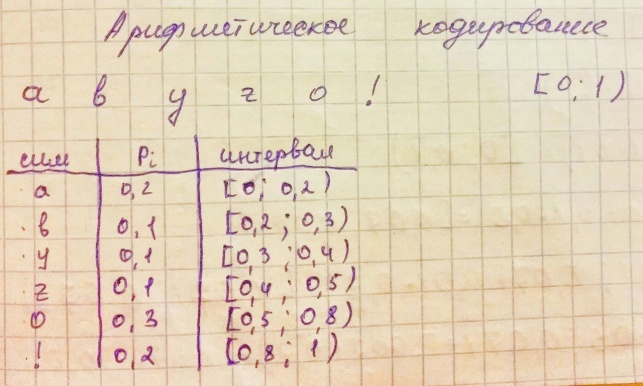 Арифметическое кодирование
а в y z о ! [0; 1)
сим Pi интервал
а 0,2 [0; 0,2)
в 0,1 [0,2; 0,3)
y 0,1 [0,3; 0,4)
z 0,1 [0,4; 0,5)
о 0,3 [0,5; 0,8)
! 0,2 [0,8; 1)